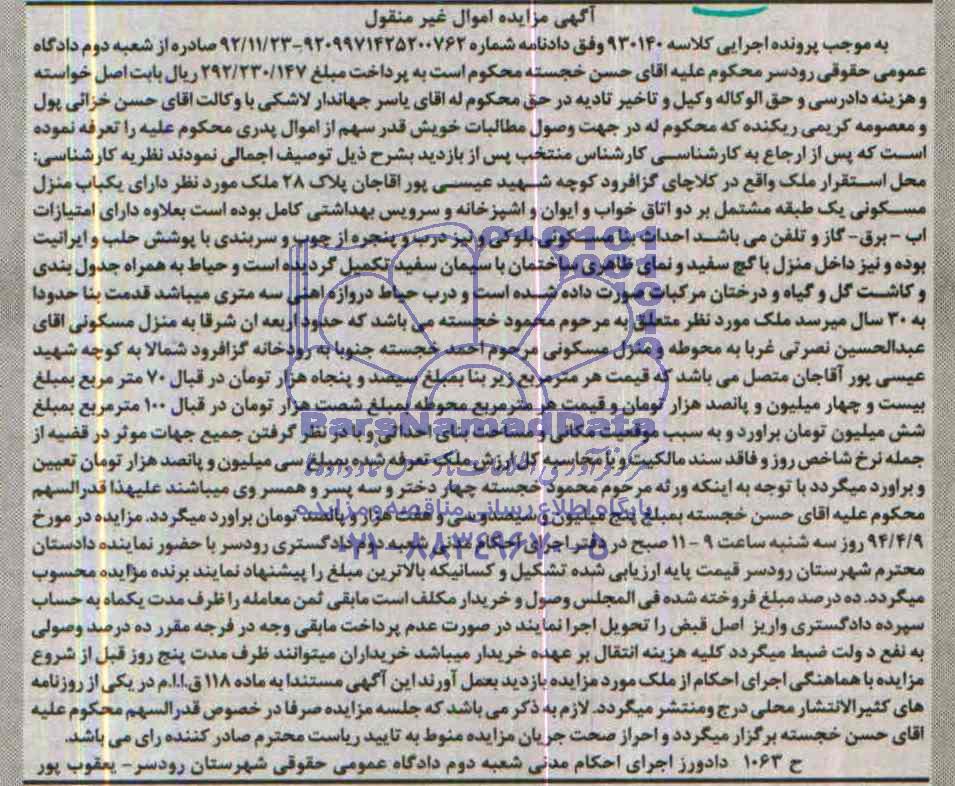 آگهی مزایده اموال غیر منقول
به موجب پرونده اجرایی کلاسه ۹۳۰۱۴۰ وفق دادنامه شماره ۹۲۰۹۹۷۱۴۲۵۲۰۰۷۶۲-۹۲/۱۱/۲۳ صادره از شعبه دوم دادگاه
عمومی حقوقی رودسر محکوم علیه اقای حسن خجسته محکوم است به پرداخت مبلغ ۲۹۲/۲۳۰/۱۴۷ ریال بابت اصل خواسته
و هزینه دادرسی و حق الوکاله وکیل و تاخیر تادیه در حق محکوم له اقای یاسر جهاندار لاشکی با وکالت اقای حسن خزائی پول
و معصومه کریمی ریکنده که محکوم له در جهت وصول مطالبات خویش قدر سهم از اموال پدری محکوم علیه را تعرفه نموده
است که پس از ارجاع به کارشناسی کارشناس منتخب پس از بازدید بشرح ذیل توصیف اجمالی نمودند نظریه کارشناسی:
محل استقرار ملک واقع در کلاچای گزافرود کوچه شهید عیسی پور اقاجان پلاک ۲۸ ملک مورد نظر دارای یکباب منزل
مسکونی یک طبقه مشتمل بر دو اتاق خواب و ایوان و اشپزخانه و سرویس بهداشتی کامل بوده است بعلاوه دارای امتیازات
اب - برق- گاز و تلفن می باشد احداث بنا مسکونی بلوکی و نیز درب و پنجره از چوب و سربندی با پوشش حلب و ایرانیت
بوده و نیز داخل منزل با گچ سفید و نمای ظاهری ساختمان با سیمان سفید تکمیل گردیده است و حیاط به همراه جدول بندی
و کاشت گل و گیاه و درختان مرکبات صورت داده شده است و درب حیاط دروازه اهنی سه متری میباشد قدمت بنا حدودا
به ۳۰ سال میرسد ملک مورد نظر متعلق به مرحوم محمود خجسته می باشد که حدود اربعه ان شرقا به منزل مسکونی اقای
عبدالحسین نصرتی غربا به محوطه و منزل مسکونی مرحوم احمد خجسته جنوبا به رودخانه گزافرود شمالا به کوچه شهید
عیسی پور آقاجان متصل می باشد که قیمت هر مترمربع زیر بنا بمبلغ سیصد و پنجاه هزار تومان در قبال ۷۰ متر مربع بمبلغ
بیست و چهار میلیون و پانصد هزار تومان و قیمت هر مترمربع محوطه بمبلغ شصت هزار تومان در قبال ۱۰۰ مترمربع بمبلغ
شش میلیون تومان براورد و به سبب موقعیت مکانی و مساحت بنای احداثی و با در نظر گرفتن جمیع جهات موثر در قضیه از
جمله نرخ شاخص روز و فاقد سند مالکیت و با محاسبه کل ارزش ملک تعرفه شده بمبلغ سی میلیون و پانصد هزار تومان تعیین
و براورد میگردد با توجه به اینکه ورثه مرحوم محمود خجسته چهار دختر و سه پسر و همسر وی میباشند علیهذا قدرالسهم
محکوم علیه اقای حسن خجسته بمبلغ پنج میلیون و سیصد و سی و هفت هزار و پانصد تومان براورد میگردد. مزایده در مورخ
۹۴/۴/۹ روز سه شنبه ساعت ۹ - ۱۱ صبح در دفتر اجرای احکام مدنی شعبه دوم دادگستری رودسر با حضور نماینده دادستان
محترم شهرستان رودسر قیمت پایه ارزیابی شده تشکیل و کسانیکه بالاترین مبلغ را پیشنهاد نمایند برنده مزایده محسوب
میگردد. ده درصد مبلغ فروخته شده فی المجلس وصول و خریدار مکلف است مابقی ثمن معامله را ظرف مدت یکماه به حساب
سپرده دادگستری واریز اصل قبض را تحویل اجرا نمایند در صورت عدم پرداخت مابقی وجه در فرجه مقرر ده درصد وصولی
به نفع دولت ضبط میگردد کلیه هزینه انتقال بر عهده خریدار میباشد خریداران میتوانند ظرف مدت پنج روز قبل از شروع
مزایده با هماهنگی اجرای احکام از ملک مورد مزایده بازدید بعمل آورند این آگهی مستندا به ماده ۱۱۸ ق.ا.ا.م در یکی از روزنامه
های کثیرالانتشار محلی درج ومنتشر میگردد. لازم به ذکر می باشد که جلسه مزایده صرفا در خصوص قدرالسهم محکوم علیه
اقای حسن خجسته برگزار میگردد و احراز صحت جریان مزایده منوط به تایید ریاست محترم صادر کننده رای می باشد.
ح ۱۰۶۳ دادورز اجرای احکام مدنی شعبه دوم دادگاه عمومی حقوقی شهرستان رودسر- یعقوب پور
ParsNamadData
پایگاه اطلاع رسانی مناقصه و مزایده
۰۲۱-۸۸۳۴۹۶۷۰-۵